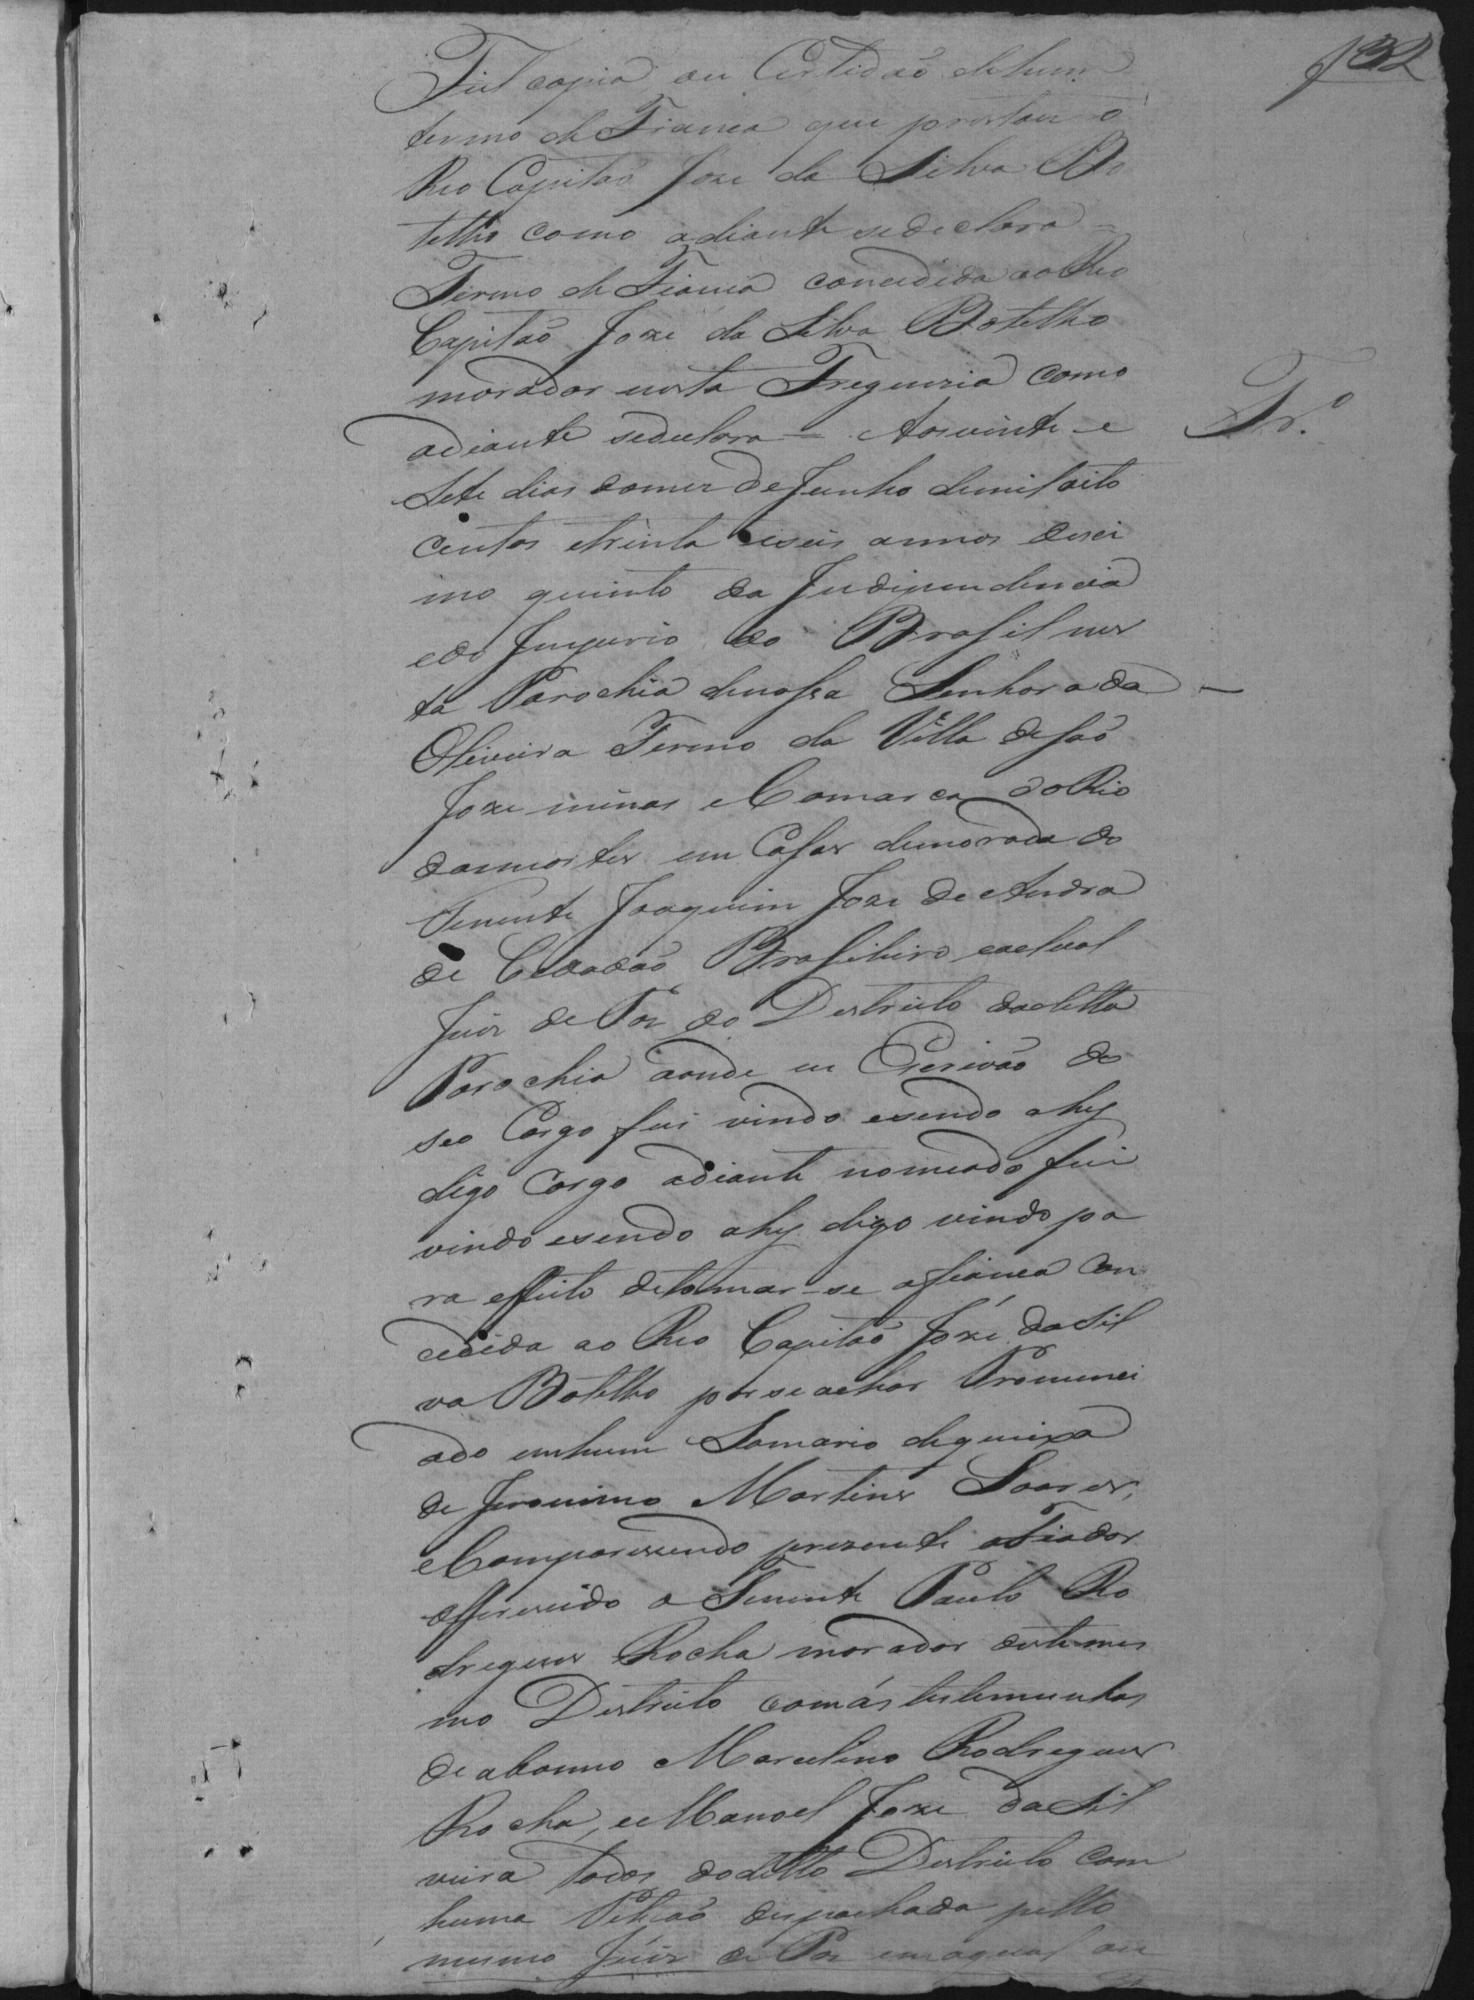 132
Fiel copia ou Certidaõ dehum
termo de Fianca que prestou o
Reo Capitaõ Joze da Silva Bo
telho como adiante sedeclara =
Termo de Fianca concedida ao Reo
Capitaõ Joze da Silva Botelho
morador nesta Freguezia como
adiante sedeclara = Aos vinte e
Tr.º
Sete dias domez deJunho demil oito
centos etrinta eseis annos deci
mo quinto da Independencia
edo Imperio do Brasil nes
ta Parochia denossa Senhora da
Oliveira Termo da Villa deSaõ
Joze minas eComarca doRio
dasmortes em Casas demorada do
Tenente Joaquim Joze de Andra
de Cidadaõ Brasileiro eactual
Juiz de Paz do Destricto dadetta
Parochia aonde eu Escrivaõ do
seo Cargo fui vindo esendo ahy
digo Cargo adiante nomeado fui
vindo esendo ahy digo vindo pa
ra effeito detomar-se afianca con
cedida ao Reo Capitaõ Joze daSil
va Botelho por se achar Pronunci
ado emhum Somario dequeixa
de Jeronimo Martins Soares,
eComparecendo prezente oFiador
offerecido o Tenente Paulo Ro
dregues Rocha morador destemes
mo Destricto comás testemunhas
de abonno Marcelino Rodregues
Rocha, eeManoel Joze daSil
veira todos dodetto Destricto com
huma Peticaõ despachada pello
mesmo Juiz de Paz emaqual ou